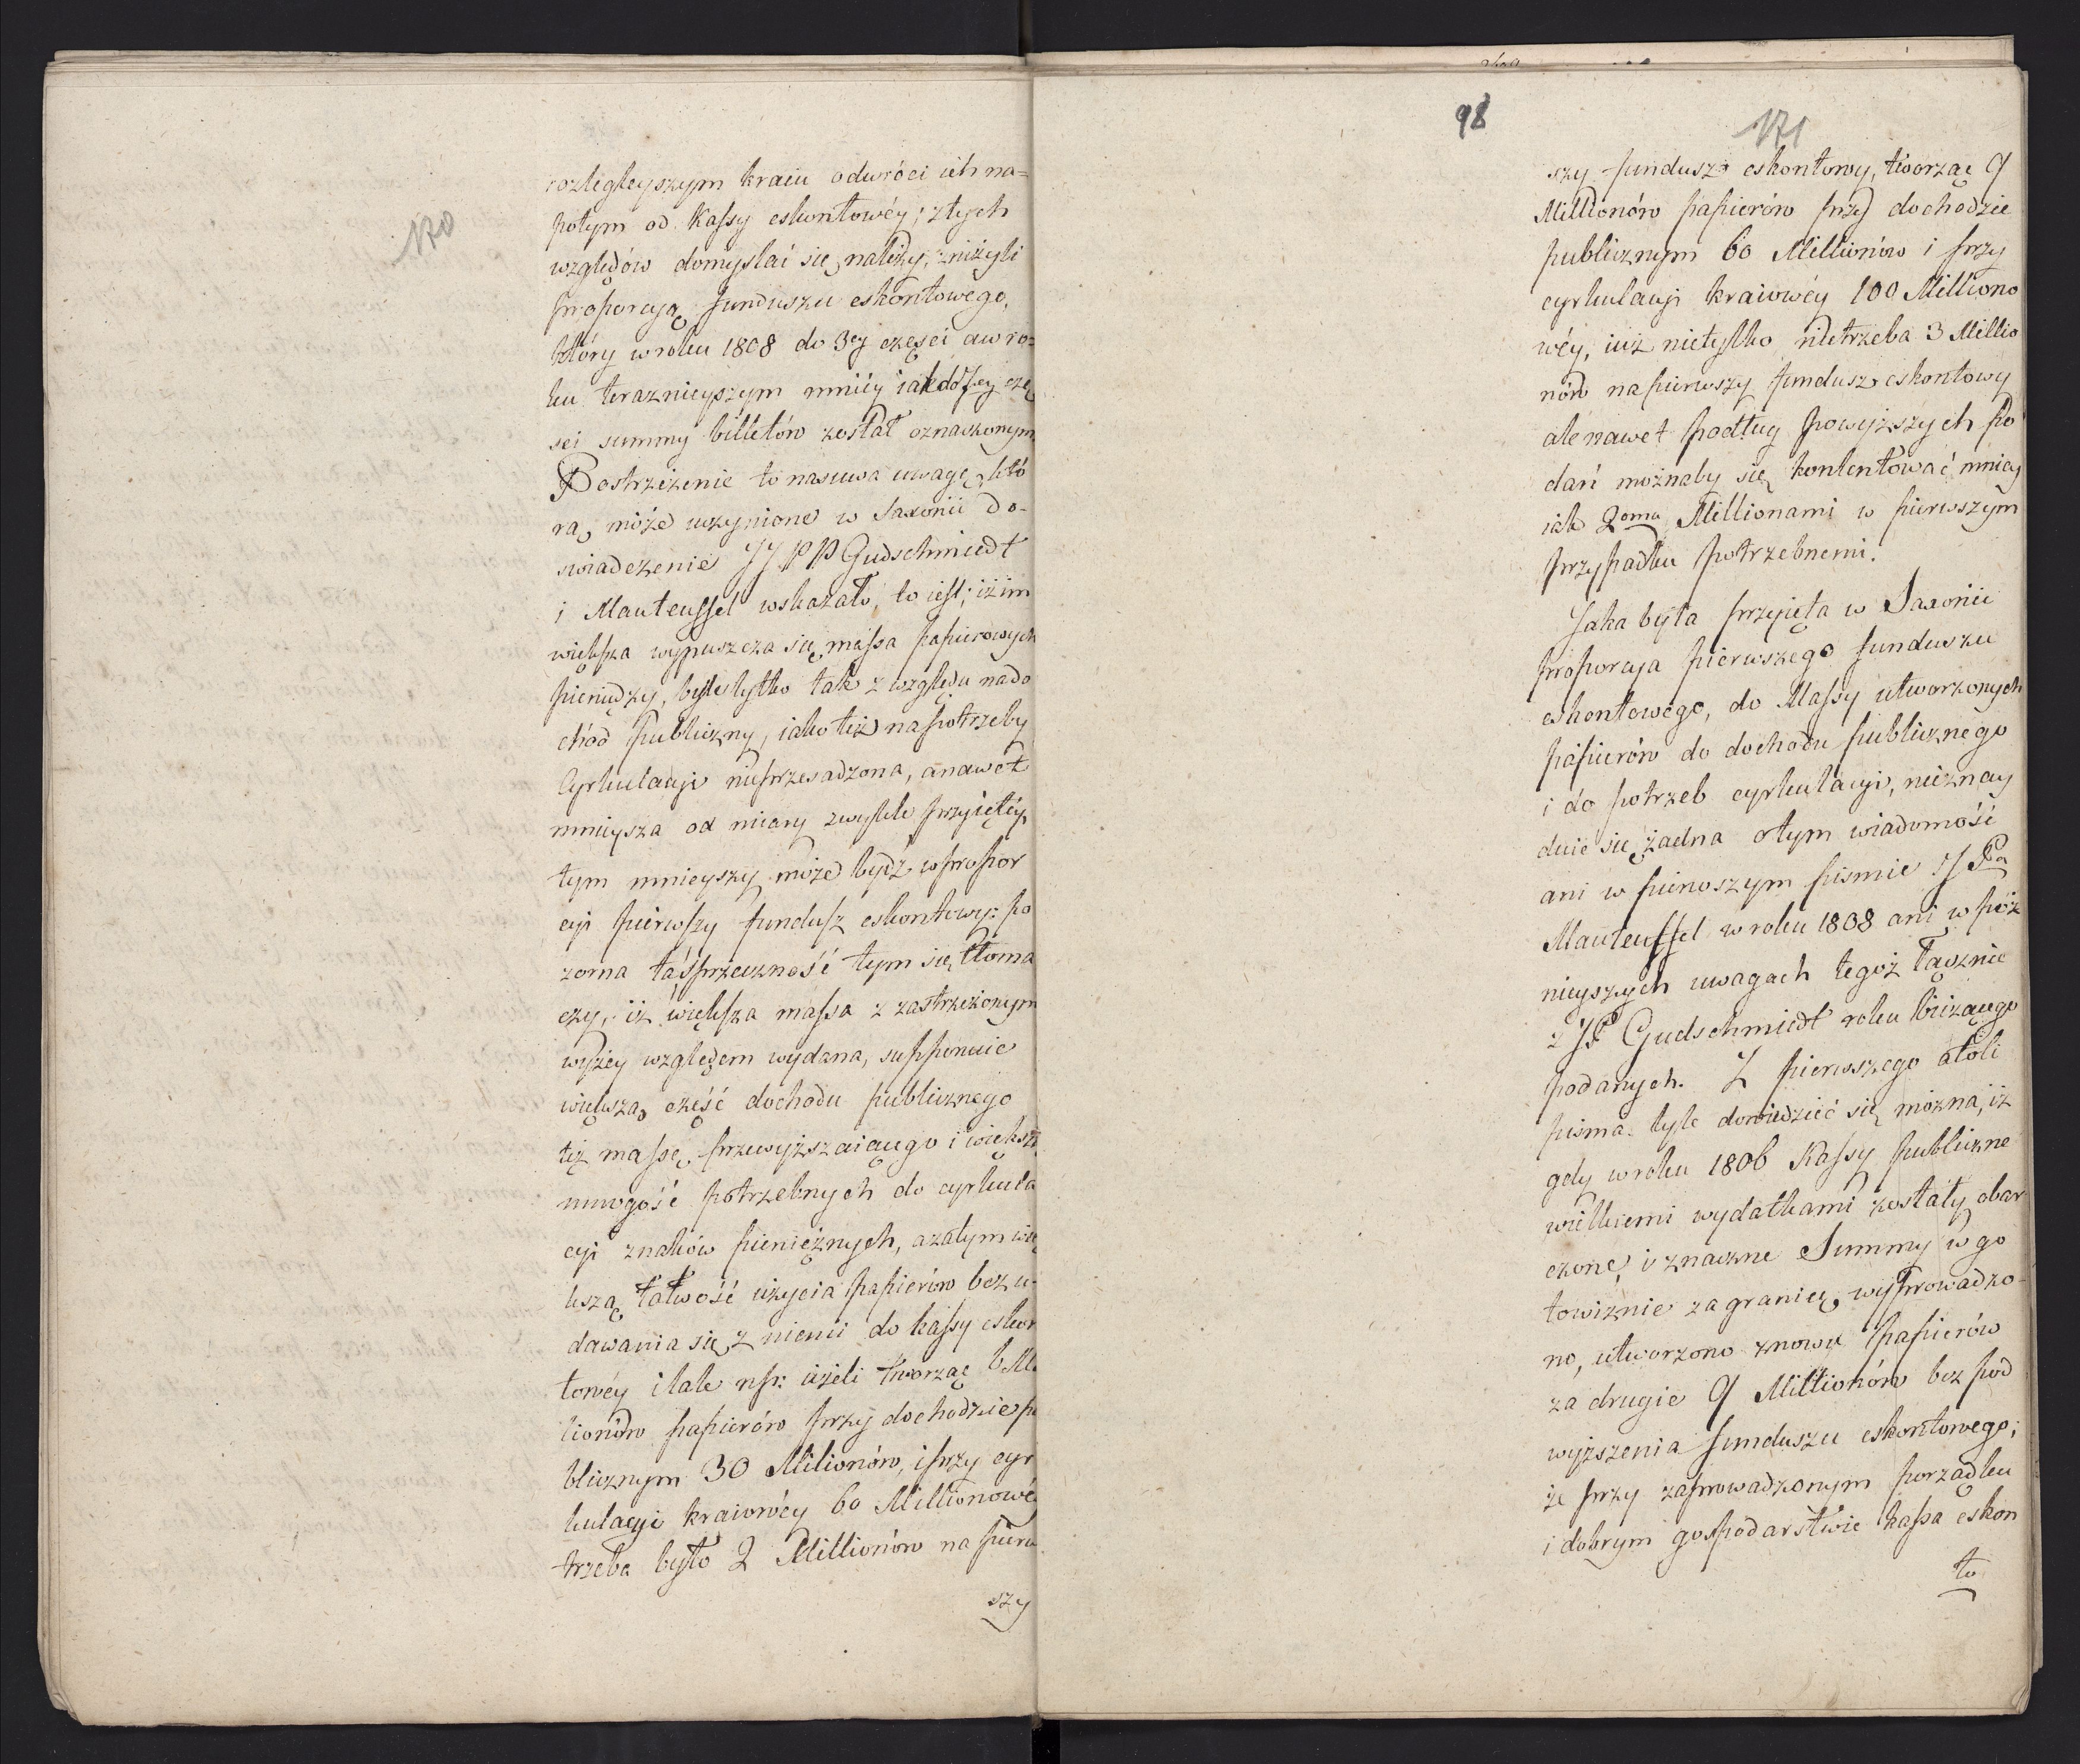 170
rozległeyszym kraiu odwróci ich na=
potym od Kassy eskontowéy; z tych
względów domyslać się należy, zniżyli
proporcyą funduszu eskontowego,
który w roku 1808 do 3ey części a w ro=
ku teraznieyszym mniéy iak do 7ey czę
sci summy billetów został oznaczonym
Postrzeżenie to nasuwa uwagę, któ
rą, może uczynione w Saxonii do-
swiadczenie JJ PP Gudschmiedt
i Mauteuffel wskazało, to iest; iż im
większa wypuszcza się massa papierowych
pieniędzy, byle tylko tak z względu na do
chód publiczny, iako też na potrzeby
Cyrkulacyi nieprzesadzona, a nawet
mnieysza od miary zwykle przyiętéy,
tym mnieyszy może bydź w propor
cyi pierwszy fundusz eskontowy: po
zorna ta sprzeczność tym się tłoma
czy, iż większa massa z zastrzeżonym
wyżey względem wydana, supponuie
większą część dochodu publicznego
téż massę przewyższaiącego i większą
mnogość potrzebnych do cyrkula
cyi znaków pieniężnych, a zatym wię
kszą łatwość użycia papierów bez u-
dawania się z niemi do kassy eskon
towéy i tak np: ieżeli tworząc 6 Mi
lionów papierów przy dochodzie pu
blicznym 30 Milionów, i przy cyr
kulacyi kraiowéy 60 Millionowé
trzeba było 2 Millionów na pierw
szy
98
171
szy fundusz eskontowy, tworząc 9
Millionów papierów przy dochodzie
publicznym 60 Millionów i przy
cyrkulacyi kraiowéy 100 Milliono
wéy, iuż nietylko nietrzeba 3 Millio
nów na pierwszy fundusz eskontowy
ale nawet podług powyższych po
dań możnaby się kontentować mniey
iak 2oma Millionami w pierwszym
przypadku potrzebnemi.
Jaka była przyięta w Saxonii
proporcya pierwszego funduszu
eskontowego, do Massy utworzonych
papierów do dochodu publicznego
i do potrzeb cyrkulacyi, nieznay
duie się żadna o tym wiadomość
ani w pierwszym pismie JPa
Mauteuffel w roku 1808 ani w póź
nieyszych uwagach tegoż łącznie
z JP Gudschmiedt roku bieżącego
podanych. Z pierwszego atoli
pisma tyle dowiedzieć się można, iż
gdy w roku 1806 Kassy publiczne
wielkiemi wydatkami zostały obar
czone, i znaczne Summy w go
towiznie za granicę wyprowadzo-
no, utworzono znowu papierów
za drugie 9 Millionów bez pod
wyższenia funduszu eskontowego;
że przy zaprowadzonym porządku
i dobrym gospodarstwie kassa eskon
to